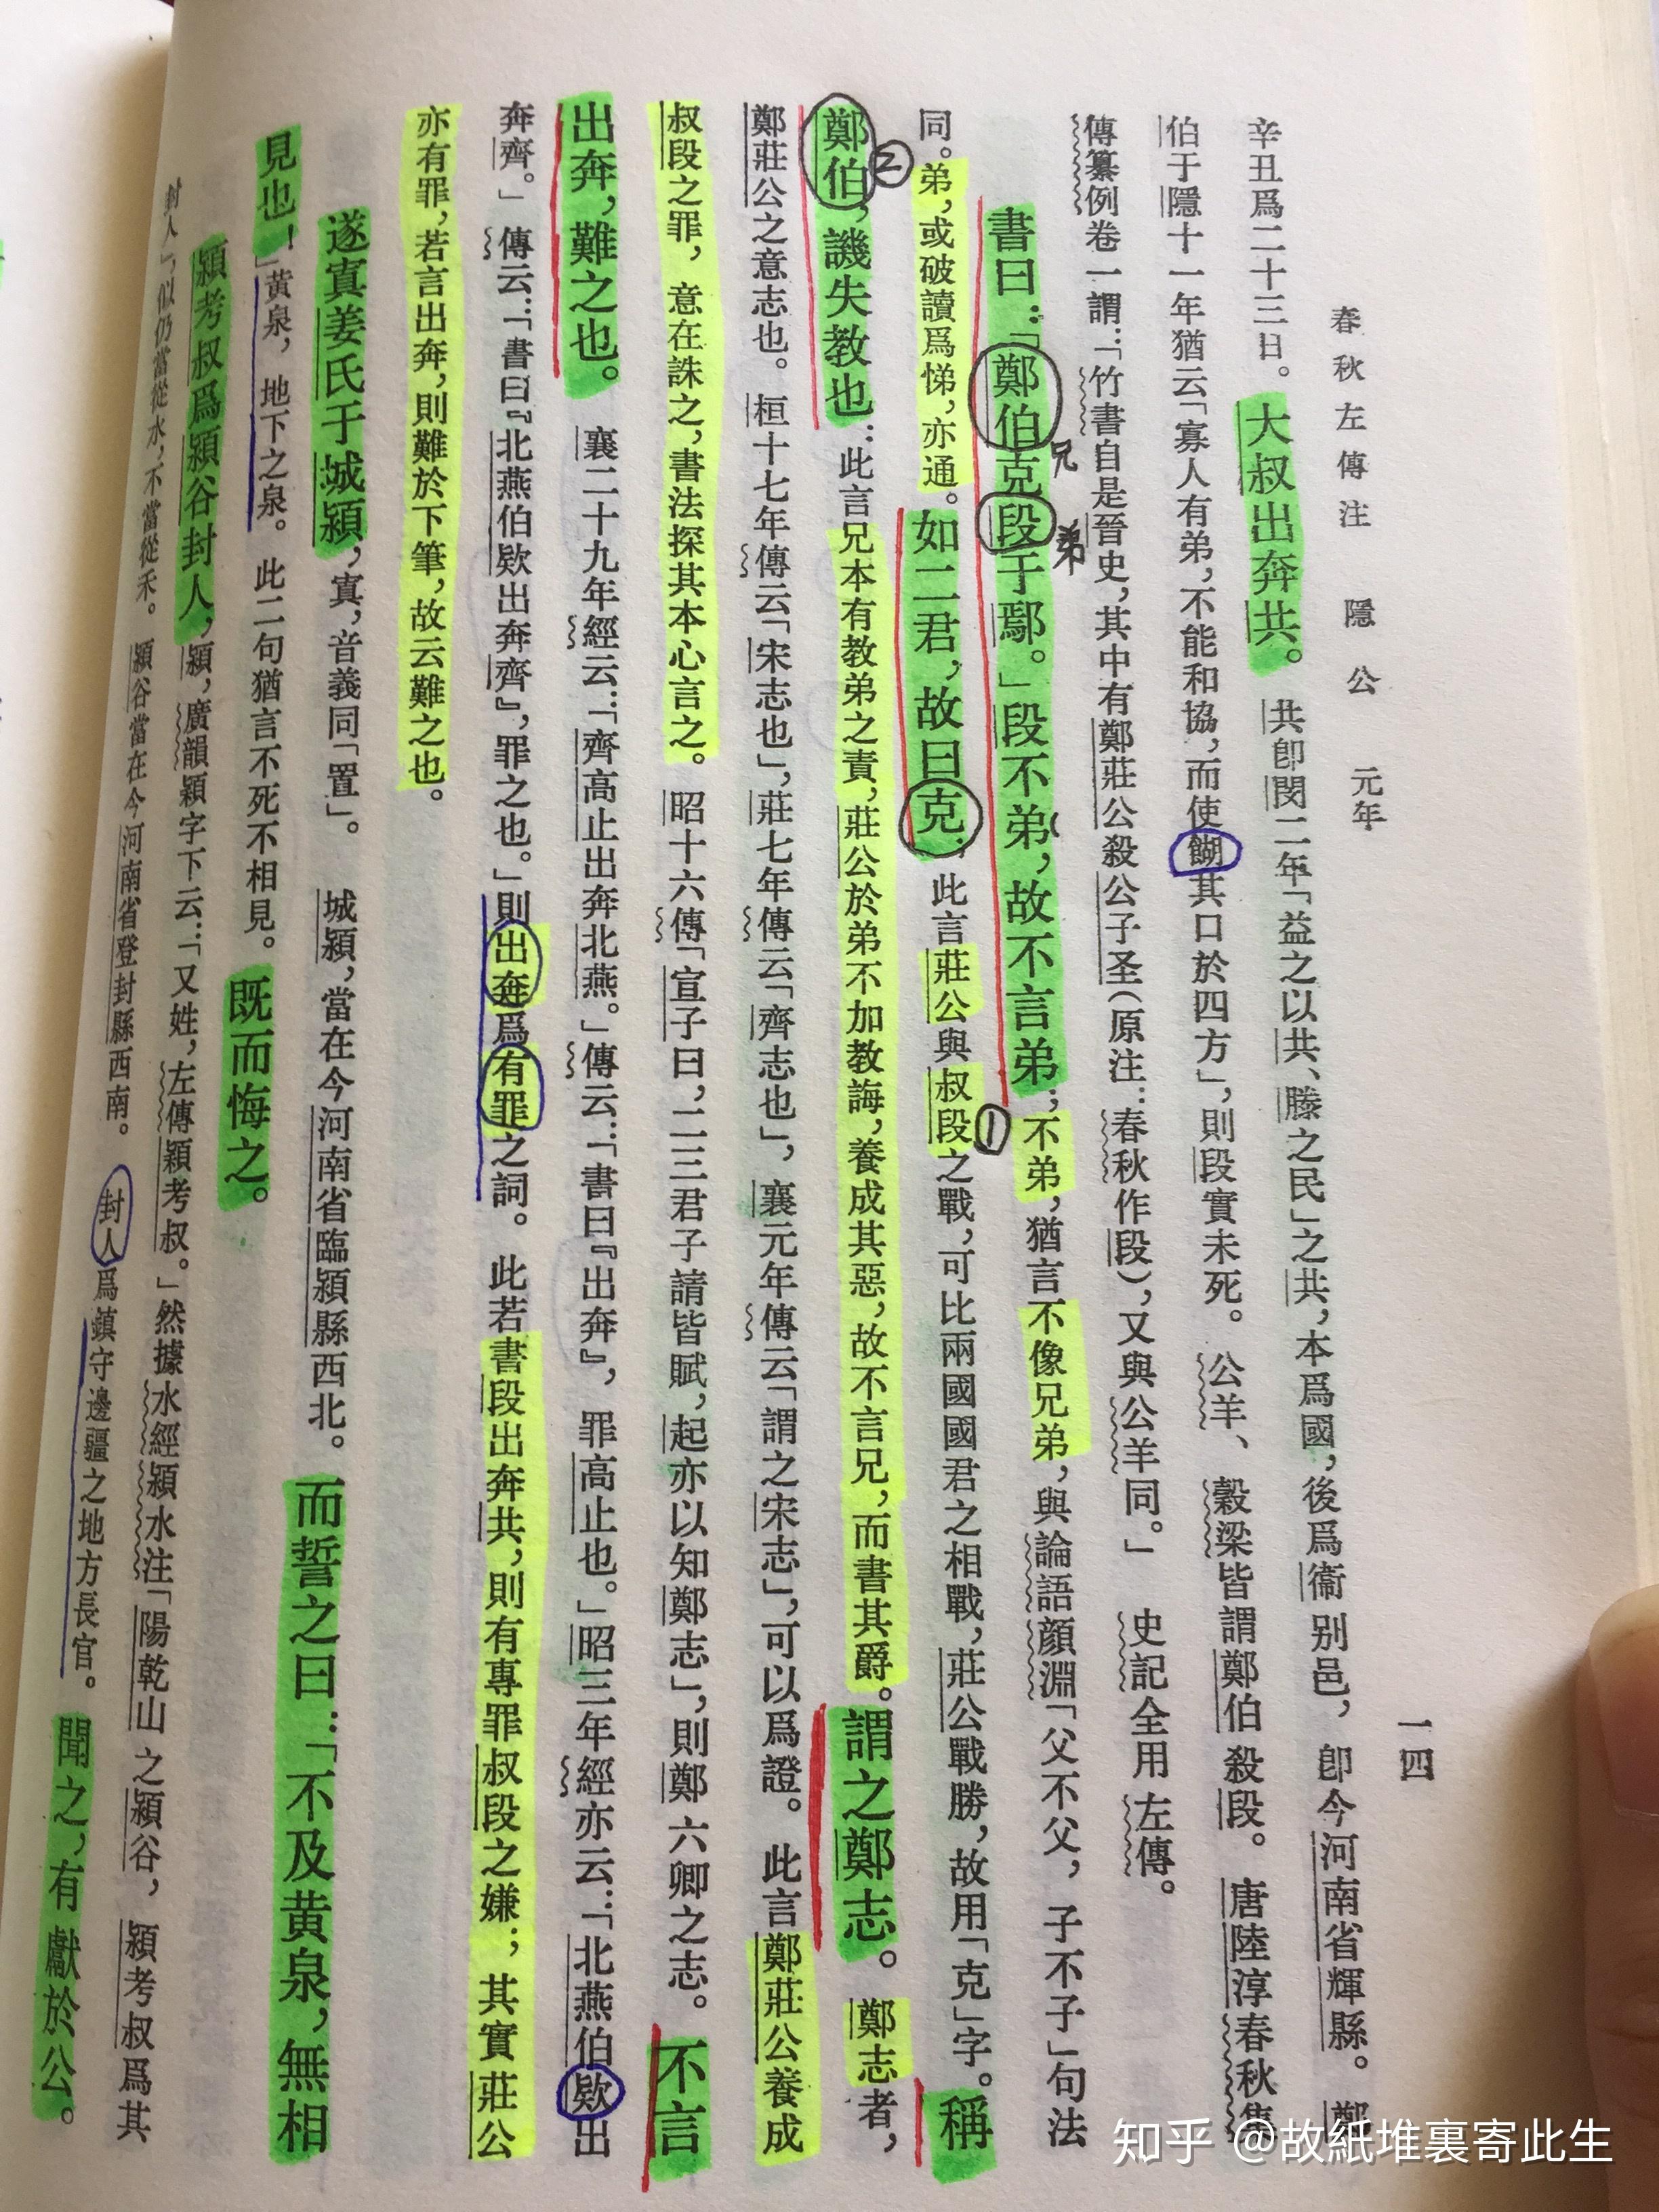 春秋左傳注　隱公　元年
一四
辛丑爲二十三日。大叔出奔共。共卽閔二年「益之以共、滕之民」之共，本爲國，後爲衞別邑，卽今河南省輝縣。鄭
伯于隱十一年猶云「寡人有弟，不能和協，而使餬其口於四方」，則段實未死。公羊、穀梁皆謂鄭伯殺段。唐陸淳春秋集
傳纂例卷一謂：「竹書自是晉史，其中有鄭莊公殺公子圣（原注：春秋作段），又與公羊同。」史記全用左傳。
書曰：「鄭伯克段于鄢。」段不弟，故不言弟；不弟，猶言不像兄弟，與論語顏淵「父不父，子不子」句法
兄
弟
①
同。弟，或破讀爲悌，亦通。如二君，故曰克；此言莊公與叔段之戰，可比兩國國君之相戰，莊公戰勝，故用「克」字。稱
鄭伯，譏失教也：此言兄本有教弟之責，莊公於弟不加教誨，養成其惡，故不言兄，而書其爵。謂之鄭志。鄭志者，
②
鄭莊公之意志也。桓十七年傳云「宋志也」，莊七年傳云「齊志也」，襄元年傳云「謂之宋志」，可以爲證。此言鄭莊公養成
叔段之罪，意在誅之，書法探其本心言之。昭十六傳「宣子曰，二三君子請皆賦，起亦以知鄭志」，則鄭六卿之志。不言
出奔，難之也。襄二十九年經云：「齊高止出奔北燕。」傳云：「書曰『出奔』，罪高止也。」昭三年經亦云：「北燕伯欵出
奔齊。」傳云：「書曰『北燕伯欵出奔齊』，罪之也。」則出奔爲有罪之詞。此若書段出奔共，則有專罪叔段之嫌；其實莊公
亦有罪，若言出奔，則難於下筆，故云難之也。
遂寘姜氏于城潁，寘，音義同「置」。城潁，當在今河南省臨潁縣西北。而誓之曰：「不及黃泉，無相
見也！」黃泉，地下之泉。此二句猶言不死不相見。既而悔之。
潁考叔爲潁谷封人，潁，廣韻潁字下云：「又姓，左傳潁考叔。」然據水經潁水注「陽乾山之潁谷，潁考叔爲其
封人」，似仍當從水，不當從禾。潁谷當在今河南省登封縣西南。封人爲鎮守邊疆之地方長官。聞之，有獻於公。
知乎 @故紙堆裏寄此生